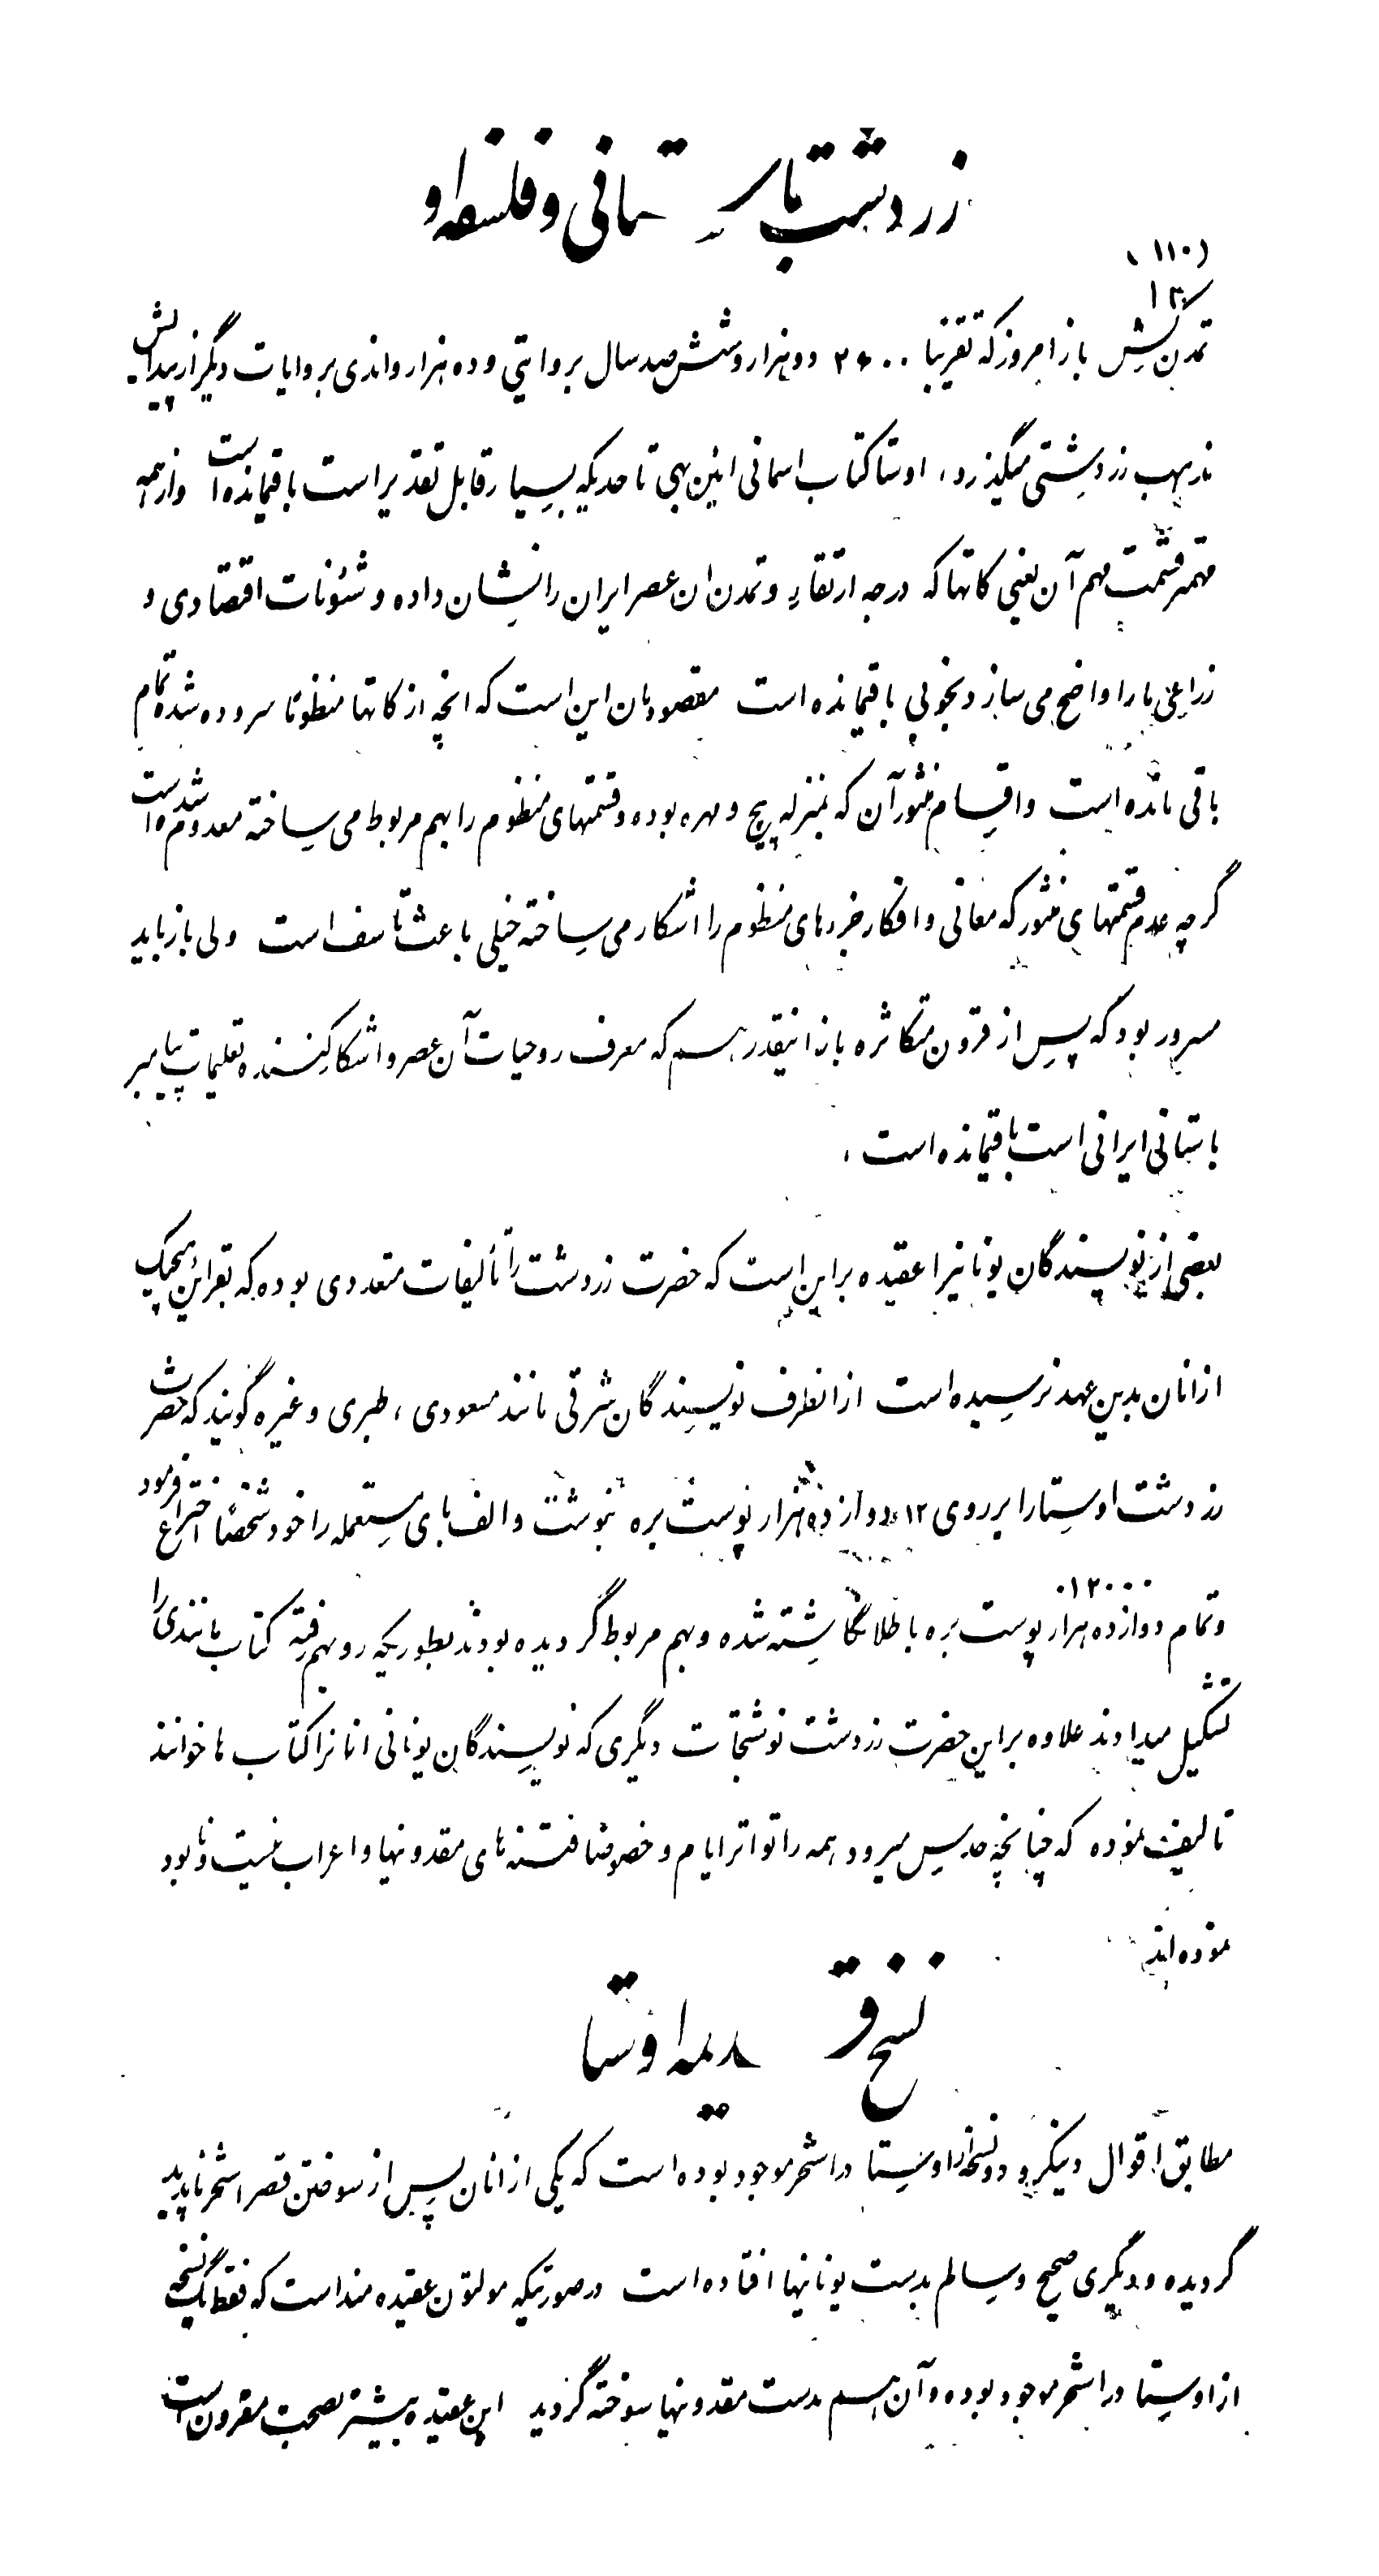 زردشت باستانی و فلسفه او
(۱۱۰)
۱۳
تمدنش باز امروز که تقریبا ۲۶۰۰ دو هزار و شش صد سال بروایتی و ده هزار و اندی بروایات دیگر از پیدایش
مذهب زردشتی میگذرد، اوستا کتاب اسمانی ائین بهی تا حدیکه بسیار قابل تقدیر است باقیمانده است و از همه
مهمتر قسمت مهم آن یعنی کاتها که درجه ارتقاء و تمدن ان عصر ایران را نشان داده و شئونات اقتصادی و
زراعتی ما را واضح می سازد بخوبی باقیمانده است مقصودمان این است که انچه از کاتها منظوما سروده شده تمام
باقی مانده است و اقسام منثور آن که بمنزله پیچ و مهره بوده و قسمتهای منظوم را بهم مربوط می ساخته معدوم شده است
گرچه عدم قسمتهای منثور که معانی و افکار جزءهای منظوم را اشکار می ساخته خیلی باعث تاسف است ولی باز باید
مسرور بود که پس از قرون متکاثره باز اینقدر هم که معرف روحیات آن عصر و اشکار کننده تعلیمات پیامبر
باستانی ایرانی است باقیمانده است ،
بعضی از نویسندگان یونانیرا عقیده بر این است که حضرت زردشت را تألیفات متعددی بوده که بقرائن هیچیک
از انان بدین عهد نرسیده است از انطرف نویسندگان شرقی مانند مسعودی ، طبری و غیره گویند که حضرت
زردشت اوستا را بر روی ۱۲ دوازده هزار پوست بره بنوشت و الف بای مستعمله را خود شخصاً اختراع فرمود
و تمام دوازده هزار ۱۲۰۰۰ پوست بره با طلا نگاشته شده و بهم مربوط گردیده بودند بطوریکه رویهمرفته کتاب مانندی را
تشکیل میدادند علاوه بر این حضرت زردشت نوشتجات دیگری که نویسندگان یونانی انانرا کتاب ها خوانند
تالیف نموده که چنانچه حدس میرود همه را تواتر ایام و خصوصا فتنه های مقدونیها و اعراب نیست و نابود
نموده اند
نسخ قدیمه اوستا
مطابق اقوال دینکرد دو نسخه از اوستا در اشخر موجود بوده است که یکی از انان پس از سوختن قصر اشخر ناپدید
گردیده و دیگری صحیح و سالم بدست یونانیها افتاده است در صورتیکه مولتون عقیده مند است که فقط یک نسخه
از اوستا در اشخر موجود بوده و آن هم بدست مقدونیها سوخته گردید این عقیده بیشتر بصحت مقرون است